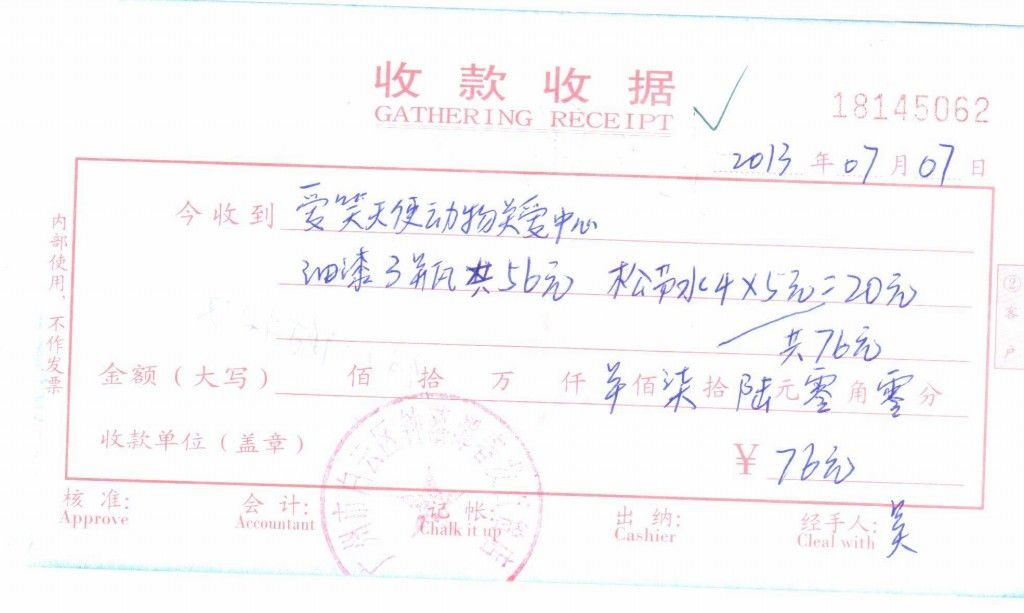 收款收据
GATHERING RECEIPT
18145062
2013年07月07日
今收到 爱笑天使动物关爱中心
油漆3瓶共56元 松节水4×5元=20元
共76元
金额（大写） 佰 拾 万 仟 佰 柒 拾 陆 元 零 角 零 分
收款单位（盖章） ¥ 76元
核准: 会计: 记帐: 出纳: 经手人: 吴
Approve Accountant Chalk it up Cashier Cleal with
内部使用、不作发票
②客户
广州市白云区